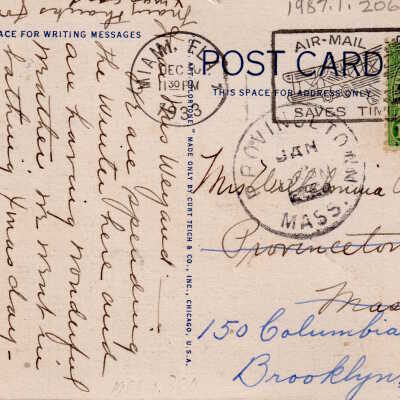 1987.1.206
ACE FOR WRITING MESSAGES
POST CARD
THIS SPACE FOR ADDRESS ONLY
MIAMI, FLA.
DEC 31
11 30 PM
1933
AIR-MAIL
SAVES TIM
PROVINCETOWN
JAN
MASS.
"C. T. ART-COLORTONE" MADE ONLY BY CURT TEICH & CO., INC., CHICAGO, U.S.A.
Miss Wilhelmina
Provinceton
Mas
150 Columbia
Brooklyn,
Miss Weyand:-
We are spending
the winter here and
are having wonderful
weather. We went in
bathing Xmas day-
Many thanks for